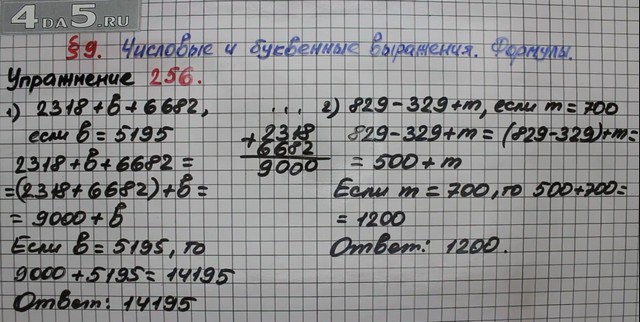 4DA5.RU
§9. Числовые и буквенные выражения. Формулы.
Упражнение 256.
1) 2318+b+6682,
если b=5195
2318+b+6682=
=(2318+6682)+b=
=9000+b
Если b=5195, то
9000+5195=14195
Ответ: 14195
...
+2318
6682
9000
2) 829-329+m, если m=700
829-329+m=(829-329)+m=
=500+m
Если m=700, то 500+700=
=1200
Ответ: 1200.